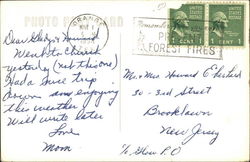 PHOTO CARD
ORANGE
Remember
PR
FOREST FIRES
1 CENT 1
1 CENT 1
Dear Gladys & Howard
Went to Church
yesterday (not this one)
Had a nice trip
down am enjoying
this weather
Will write later
Love
Mom
Mr & Mrs Howard
30 - 3rd Street
Brooklawn
New Jersey
P.O